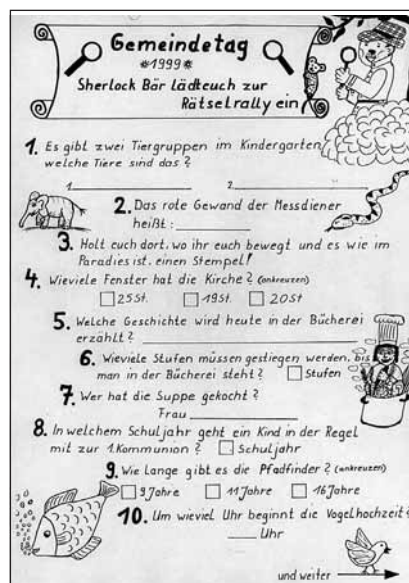 Gemeindetag
*1999*
Sherlock Bär Lädteuch zur
Rätselrally ein
1. Es gibt zwei Tiergruppen im Kindergarten
welche Tiere sind das?
1. 2.
2. Das rote Gewand der Messdiener
heißt:
3. Holt euch dort, wo ihr euch bewegt und es wie im
Paradies ist, einen Stempel!
4. Wieviele Fenster hat die Kirche? (ankreuzen)
25St. 19St. 20St
5. Welche Geschichte wird heute in der Bücherei
erzählt?
6. Wieviele Stufen müssen gestiegen werden, bis
man in der Bücherei steht? Stufen
7. Wer hat die Suppe gekocht?
Frau
8. In welchem Schuljahr geht ein Kind in der Regel
mit zur 1. Kommunion? Schuljahr
9. Wie lange gibt es die Pfadfinder? (ankreuzen)
9 Jahre 11 Jahre 16 Jahre
10. Um wieviel Uhr beginnt die Vogelhochzeit?
Uhr
und weiter